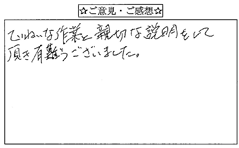 ☆ご意見・ご感想☆
ていねいな作業と親切な説明をして
頂き有難うございました。